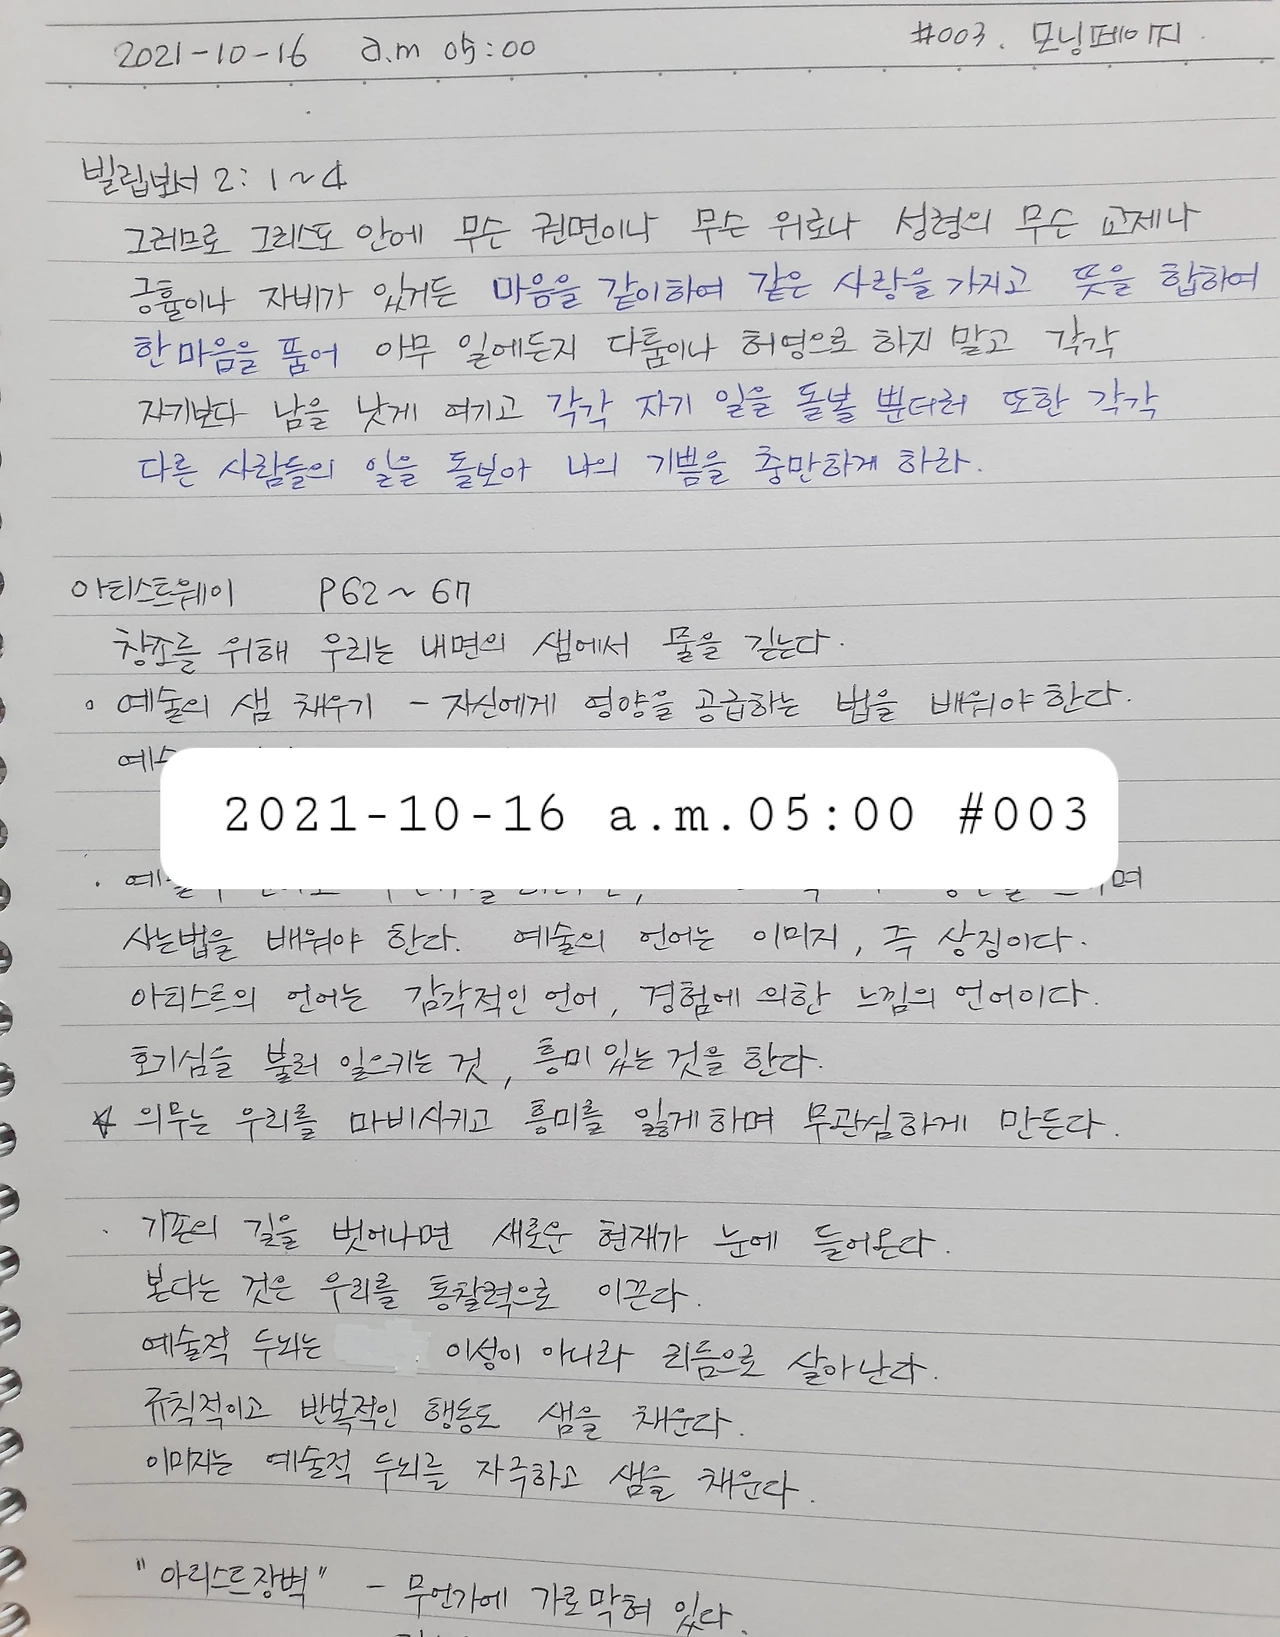 2021-10-16 a.m 05:00 #003. 모닝페이지.
빌립보서 2: 1~4
그러므로 그리스도 안에 무슨 권면이나 무슨 위로나 성령의 무슨 교제나
긍휼이나 자비가 있거든 마음을 같이하여 같은 사랑을 가지고 뜻을 합하여
한마음을 품어 아무 일에든지 다툼이나 허영으로 하지 말고 각각
자기보다 남을 낫게 여기고 각각 자기 일을 돌볼 뿐더러 또한 각각
다른 사람들의 일을 돌보아 나의 기쁨을 충만하게 하라.
아티스트웨이 P62~67
창조를 위해 우리는 내면의 샘에서 물을 긷는다.
◦ 예술의 샘 채우기 - 자신에게 영양을 공급하는 법을 배워야한다.
2021-10-16 a.m.05:00 #003
사는법을 배워야 한다. 예술의 언어는 이미지, 즉 상징이다.
아티스트의 언어는 감각적인 언어, 경험에 의한 느낌의 언어이다.
호기심을 불러 일으키는 것, 흥미 있는 것을 한다.
☆ 의무는 우리를 마비시키고 흥미를 잃게하며 무관심하게 만든다.
· 기존의 길을 벗어나면 새로운 현재가 눈에 들어온다.
본다는 것은 우리를 통찰력으로 이끈다.
예술적 두뇌는 이성이 아니라 리듬으로 살아난다.
규칙적이고 반복적인 행동도 샘을 채운다.
이미지는 예술적 두뇌를 자극하고 샘을 채운다.
"아티스트장벽" - 무언가에 가로막혀 있다.